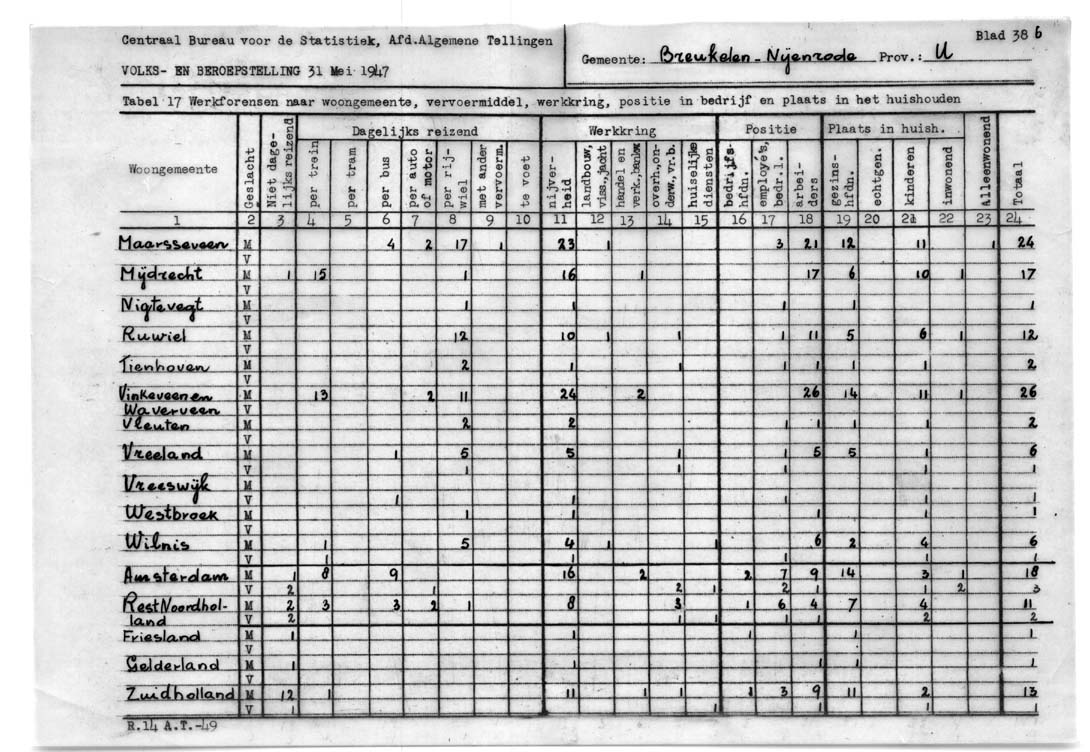 Centraal Bureau voor de Statistiek, Afd.Algemene Tellingen
VOLKS- EN BEROEPSTELLING 31 Mei 1947
Blad 38 b
Gemeente: Breukelen - Nijenrode Prov.: U
Tabel 17 Werkforensen naar woongemeente, vervoermiddel, werkkring, positie in bedrijf en plaats in het huishouden
Woongemeente Geslacht Niet dage-lijks reizend Dagelijks reizend Werkkring Positie Plaats in huish. Alleenwonend Totaal
per trein per tram per bus per auto of motor per rij-wiel met ander vervoerm. te voet nijver-heid landbouw, viss., jacht handel en verk., bankw overh., on-derw., vr. b. huiselijke diensten bedrijfs-hfdn. employé's, bedr. l. arbei-ders gezins-hfdn. echtgen. kinderen inwonend
1 2 3 4 5 6 7 8 9 10 11 12 13 14 15 16 17 18 19 20 21 22 23 24
Maarsseveen M 4 2 17 1 23 1 3 21 12 11 1 24
V
Mijdrecht M 1 15 1 16 1 17 6 10 1 17
V
Nigtevegt M 1 1 1 1 1
V
Ruwiel M 12 10 1 1 1 11 5 6 1 12
V
Tienhoven M 2 1 1 1 1 1 1 2
V
Vinkeveen en M 13 2 11 24 2 26 14 11 1 26
Waverveen V
Vleuten M 2 2 1 1 1 1 2
V
Vreeland M 1 5 5 1 1 5 5 1 6
V 1 1 1 1 1
Vreeswijk M
V 1 1 1 1 1
Westbroek M 1 1 1 1 1
V
Wilnis M 1 5 4 1 1 6 2 4 6
V 1 1 1 1 1
Amsterdam M 1 8 9 16 2 2 7 9 14 3 1 18
V 2 1 2 1 2 1 1 2 3
Rest Noordhol- M 2 3 3 2 1 8 3 1 6 4 7 4 11
land V 2 1 1 1 1 2 2
Friesland M 1 1 1 1 1
V
Gelderland M 1 1 1 1 1
V
Zuidholland M 12 1 11 1 1 1 3 9 11 2 13
V 1 1 1 1 1
R.14 A.T.-49